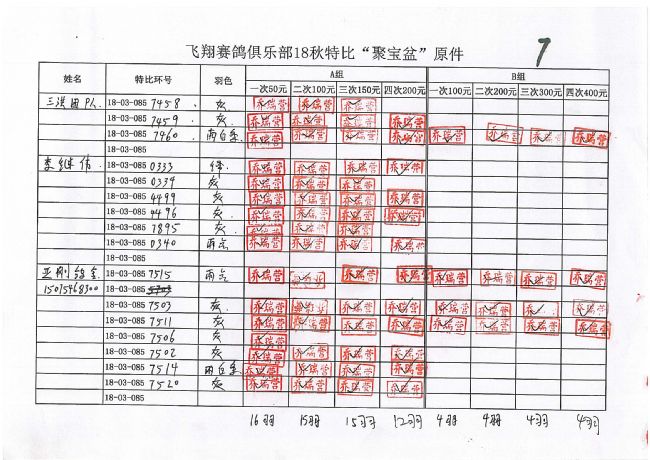 飞翔赛鸽俱乐部18秋特比“聚宝盆”原件 7
姓名 特比环号 羽色 A组 B组
一次50元 二次100元 三次150元 四次200元 一次100元 二次200元 三次300元 四次400元
18-03-085 7458 灰 乔瑞营 乔瑞营 乔瑞营
18-03-085 7459 灰 乔瑞营 乔瑞营 乔瑞营 乔瑞营
18-03-085 7460 雨白条 乔瑞营 乔瑞营 乔瑞营 乔瑞营 乔瑞营 乔瑞营 乔瑞营 乔瑞营
18-03-085
李继伟 18-03-085 0333 绛 乔瑞营 乔瑞营 乔瑞营 乔瑞营
18-03-085 0334 灰 乔瑞营 乔瑞营 乔瑞营
18-03-085 4499 灰 乔瑞营 乔瑞营 乔瑞营 乔瑞营
18-03-085 4496 灰 乔瑞营 乔瑞营 乔瑞营 乔瑞营
18-03-085 7895 灰 乔瑞营 乔瑞营 乔瑞营
18-03-085 0340 雨点 乔瑞营 乔瑞营 乔瑞营 乔瑞营
18-03-085
18-03-085 7515 雨点 乔瑞营 乔瑞营 乔瑞营 乔瑞营 乔瑞营 乔瑞营 乔瑞营
15075468300 18-03-085
18-03-085 7503 灰 乔瑞营 乔瑞营 乔瑞营 乔瑞营 乔瑞营 乔 乔瑞营
18-03-085 7511 灰 乔瑞营 乔瑞营 乔瑞营 乔瑞营 乔瑞营 乔瑞营 乔瑞营 乔瑞营
18-03-085 7506 灰 乔瑞营
18-03-085 7502 灰 乔瑞营 乔瑞营 乔瑞营 乔瑞营
18-03-085 7514 雨白条 乔瑞营 乔瑞营 乔瑞营 乔瑞营
18-03-085 7520 灰 乔瑞营 乔瑞营 乔瑞营 乔瑞营
18-03-085
16羽 15羽 15羽 12羽 4羽 4羽 4羽 4羽